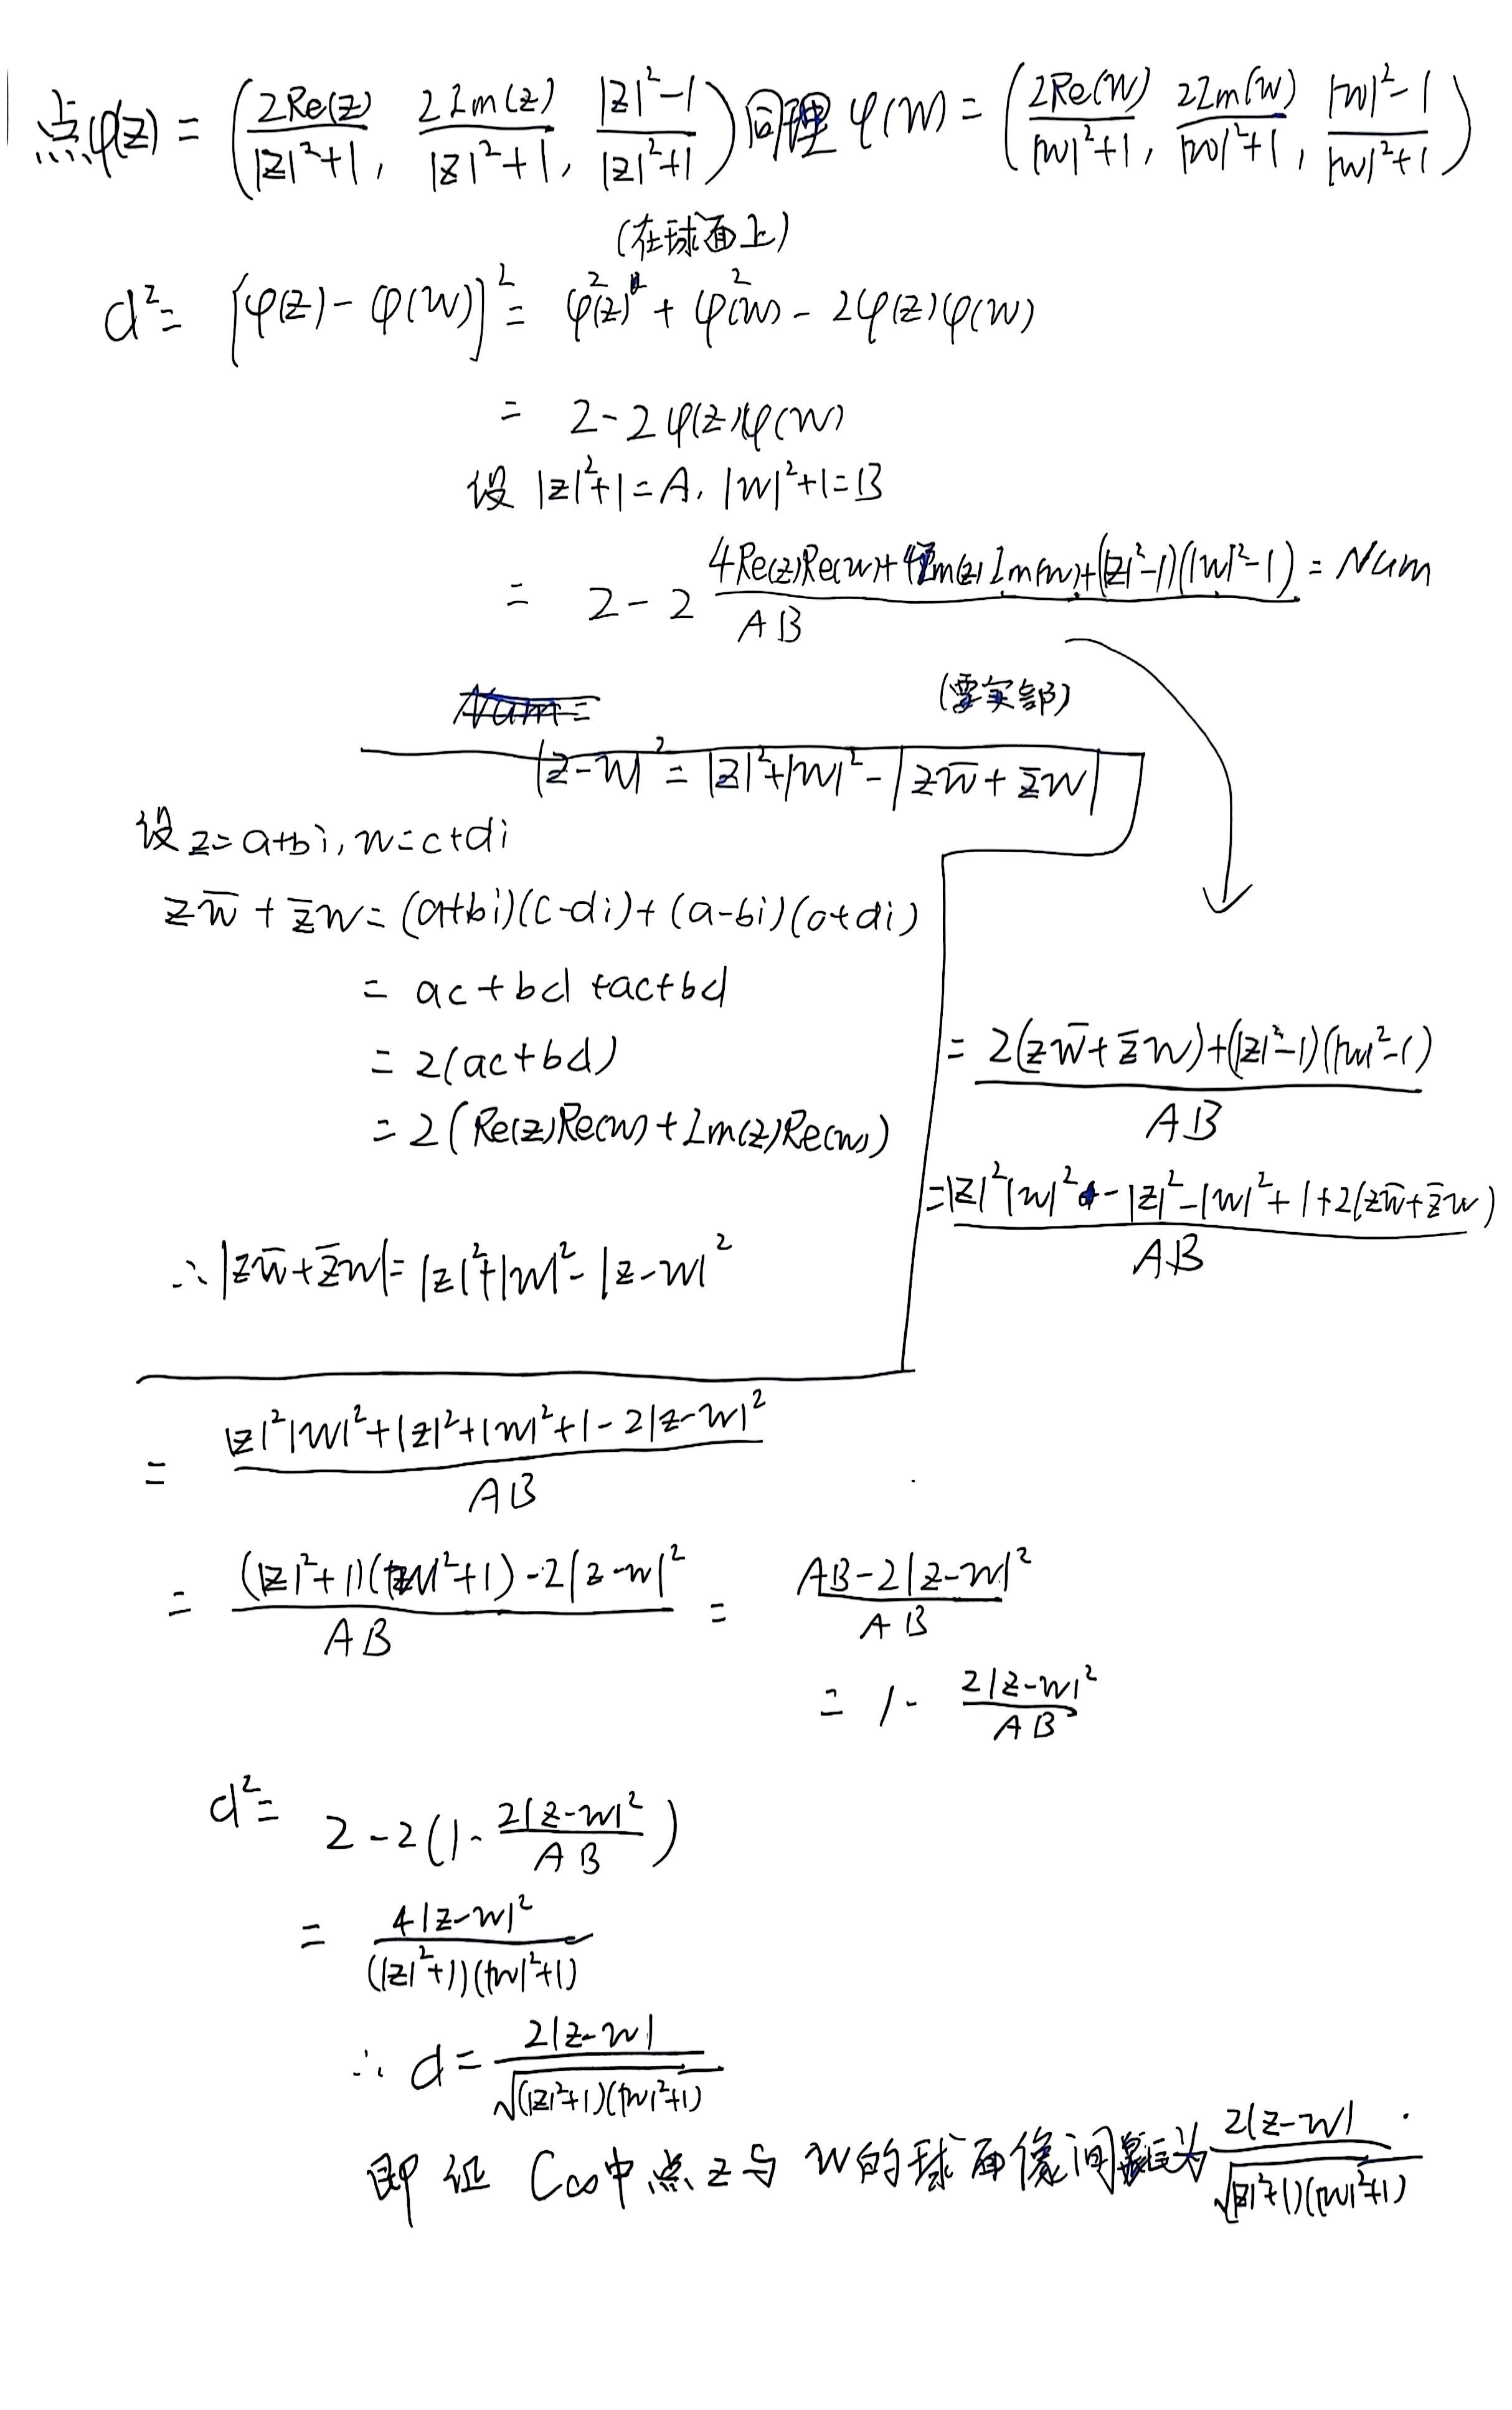 点φ(z) = (2Re(z)/|z|²+1, 2Im(z)/|z|²+1, |z|²-1/|z|²+1) 同理 φ(w) = (2Re(w)/|w|²+1, 2Im(w)/|w|²+1, |w|²-1/|w|²+1)
(在球面上)
d² = [φ(z) - φ(w)]² = φ²(z) + φ²(w) - 2φ(z)φ(w)
= 2-2φ(z)φ(w)
设 |z|²+1=A, |w|²+1=B
= 2 - 2 4Re(z)Re(w)+4Im(z)Im(w)+(|z|²-1)(|w|²-1)/AB = Num
(需实部)
|z-w|² = |z|²+|w|²-|zw̄+z̄w|
设 z=a+bi, w=c+di
zw̄ + z̄w = (a+bi)(c-di)+(a-bi)(c+di)
= ac+bd+ac+bd
= 2(ac+bd)
= 2(Re(z)Re(w)+Im(z)Re(w))
∴ |zw̄+z̄w| = |z|²+|w|²-|z-w|²
= 2(zw̄+z̄w)+(|z|²-1)(|w|²-1)/AB
= |z|²|w|²-|z|²-|w|²+1+2(zw̄+z̄w)/AB
= |z|²|w|²+|z|²+|w|²+1-2|z-w|²/AB
= (|z|²+1)(|w|²+1)-2|z-w|²/AB = AB-2|z-w|²/AB
= 1- 2|z-w|²/AB
d² = 2-2(1- 2|z-w|²/AB)
= 4|z-w|²/(|z|²+1)(|w|²+1)
∴ d = 2|z-w|/√(|z|²+1)(|w|²+1)
即证 C∞中点z与w的球面像间距为 2|z-w|/√(|z|²+1)(|w|²+1) .